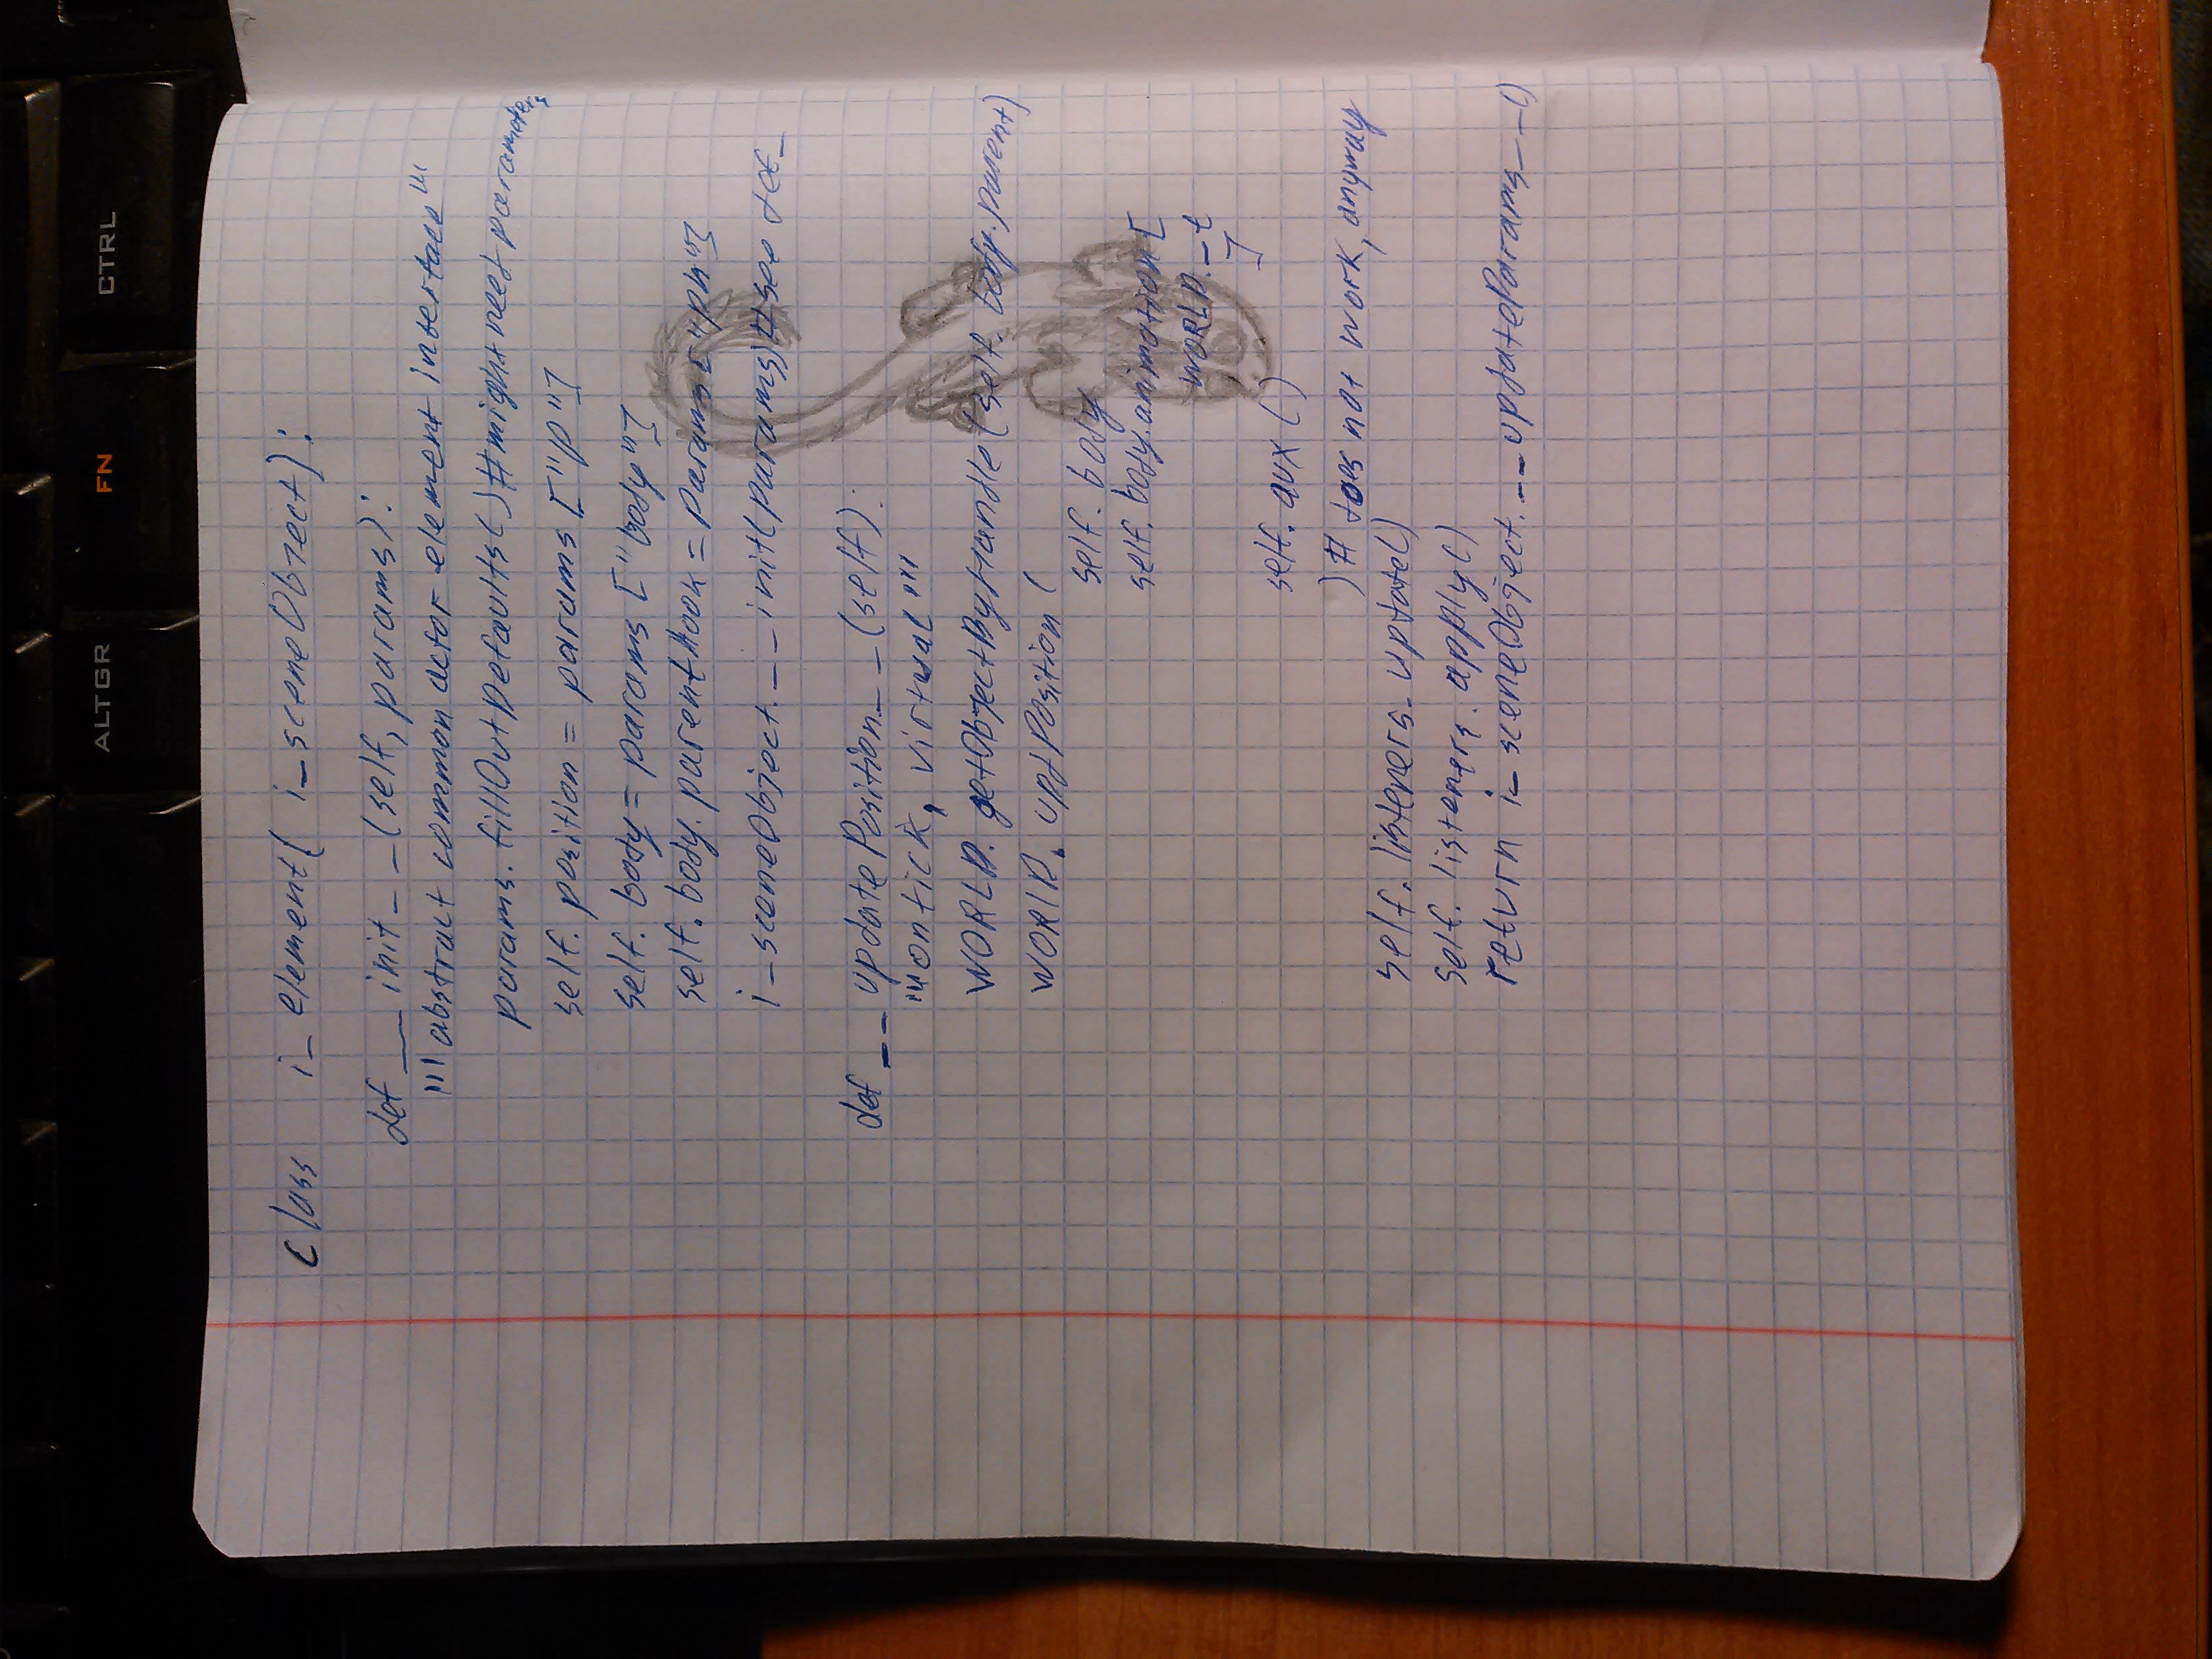 class i_element( i_sceneObject):
def __init__(self, params):
"""abstract common actor element interface"""
params.fillOutDefaults()#might need parameters
self.position = params["p"]
self.body = params["body"]
self.body.parenthook = params["ph"]
i_sceneObject.__init(params)#see def_
def __updatePosition__(self):
"""ontick, virtual"""
WORLD.getObjectByHandle(self.body.parent)
WORLD.updPosition(
self.body
self.body.animation[
WORLD.__t
]
self.aux()
)# does not work, anyway
self.listeners.update()
self.listeners.apply()
return i_sceneObject.__updateParams__()
ALTGR
FN
CTRL